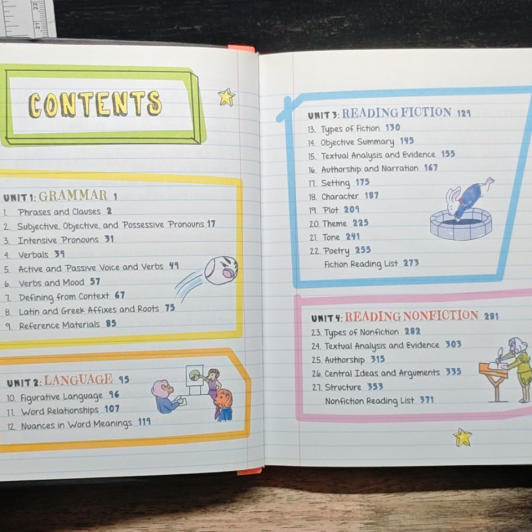 CONTENTS
UNIT 1: GRAMMAR 1
1. Phrases and Clauses 2
2. Subjective, Objective, and Possessive Pronouns 17
3. Intensive Pronouns 31
4. Verbals 39
5. Active and Passive Voice and Verbs 49
6. Verbs and Mood 57
7. Defining from Context 67
8. Latin and Greek Affixes and Roots 75
9. Reference Materials 85
UNIT 2: LANGUAGE 95
10. Figurative Language 96
11. Word Relationships 107
12. Nuances in Word Meanings 119
UNIT 3: READING FICTION 129
13. Types of Fiction 130
14. Objective Summary 145
15. Textual Analysis and Evidence 155
16. Authorship and Narration 167
17. Setting 175
18. Character 187
19. Plot 209
20. Theme 225
21. Tone 241
22. Poetry 255
Fiction Reading List 273
UNIT 4: READING NONFICTION 281
23. Types of Nonfiction 282
24. Textual Analysis and Evidence 303
25. Authorship 315
26. Central Ideas and Arguments 335
27. Structure 353
Nonfiction Reading List 371